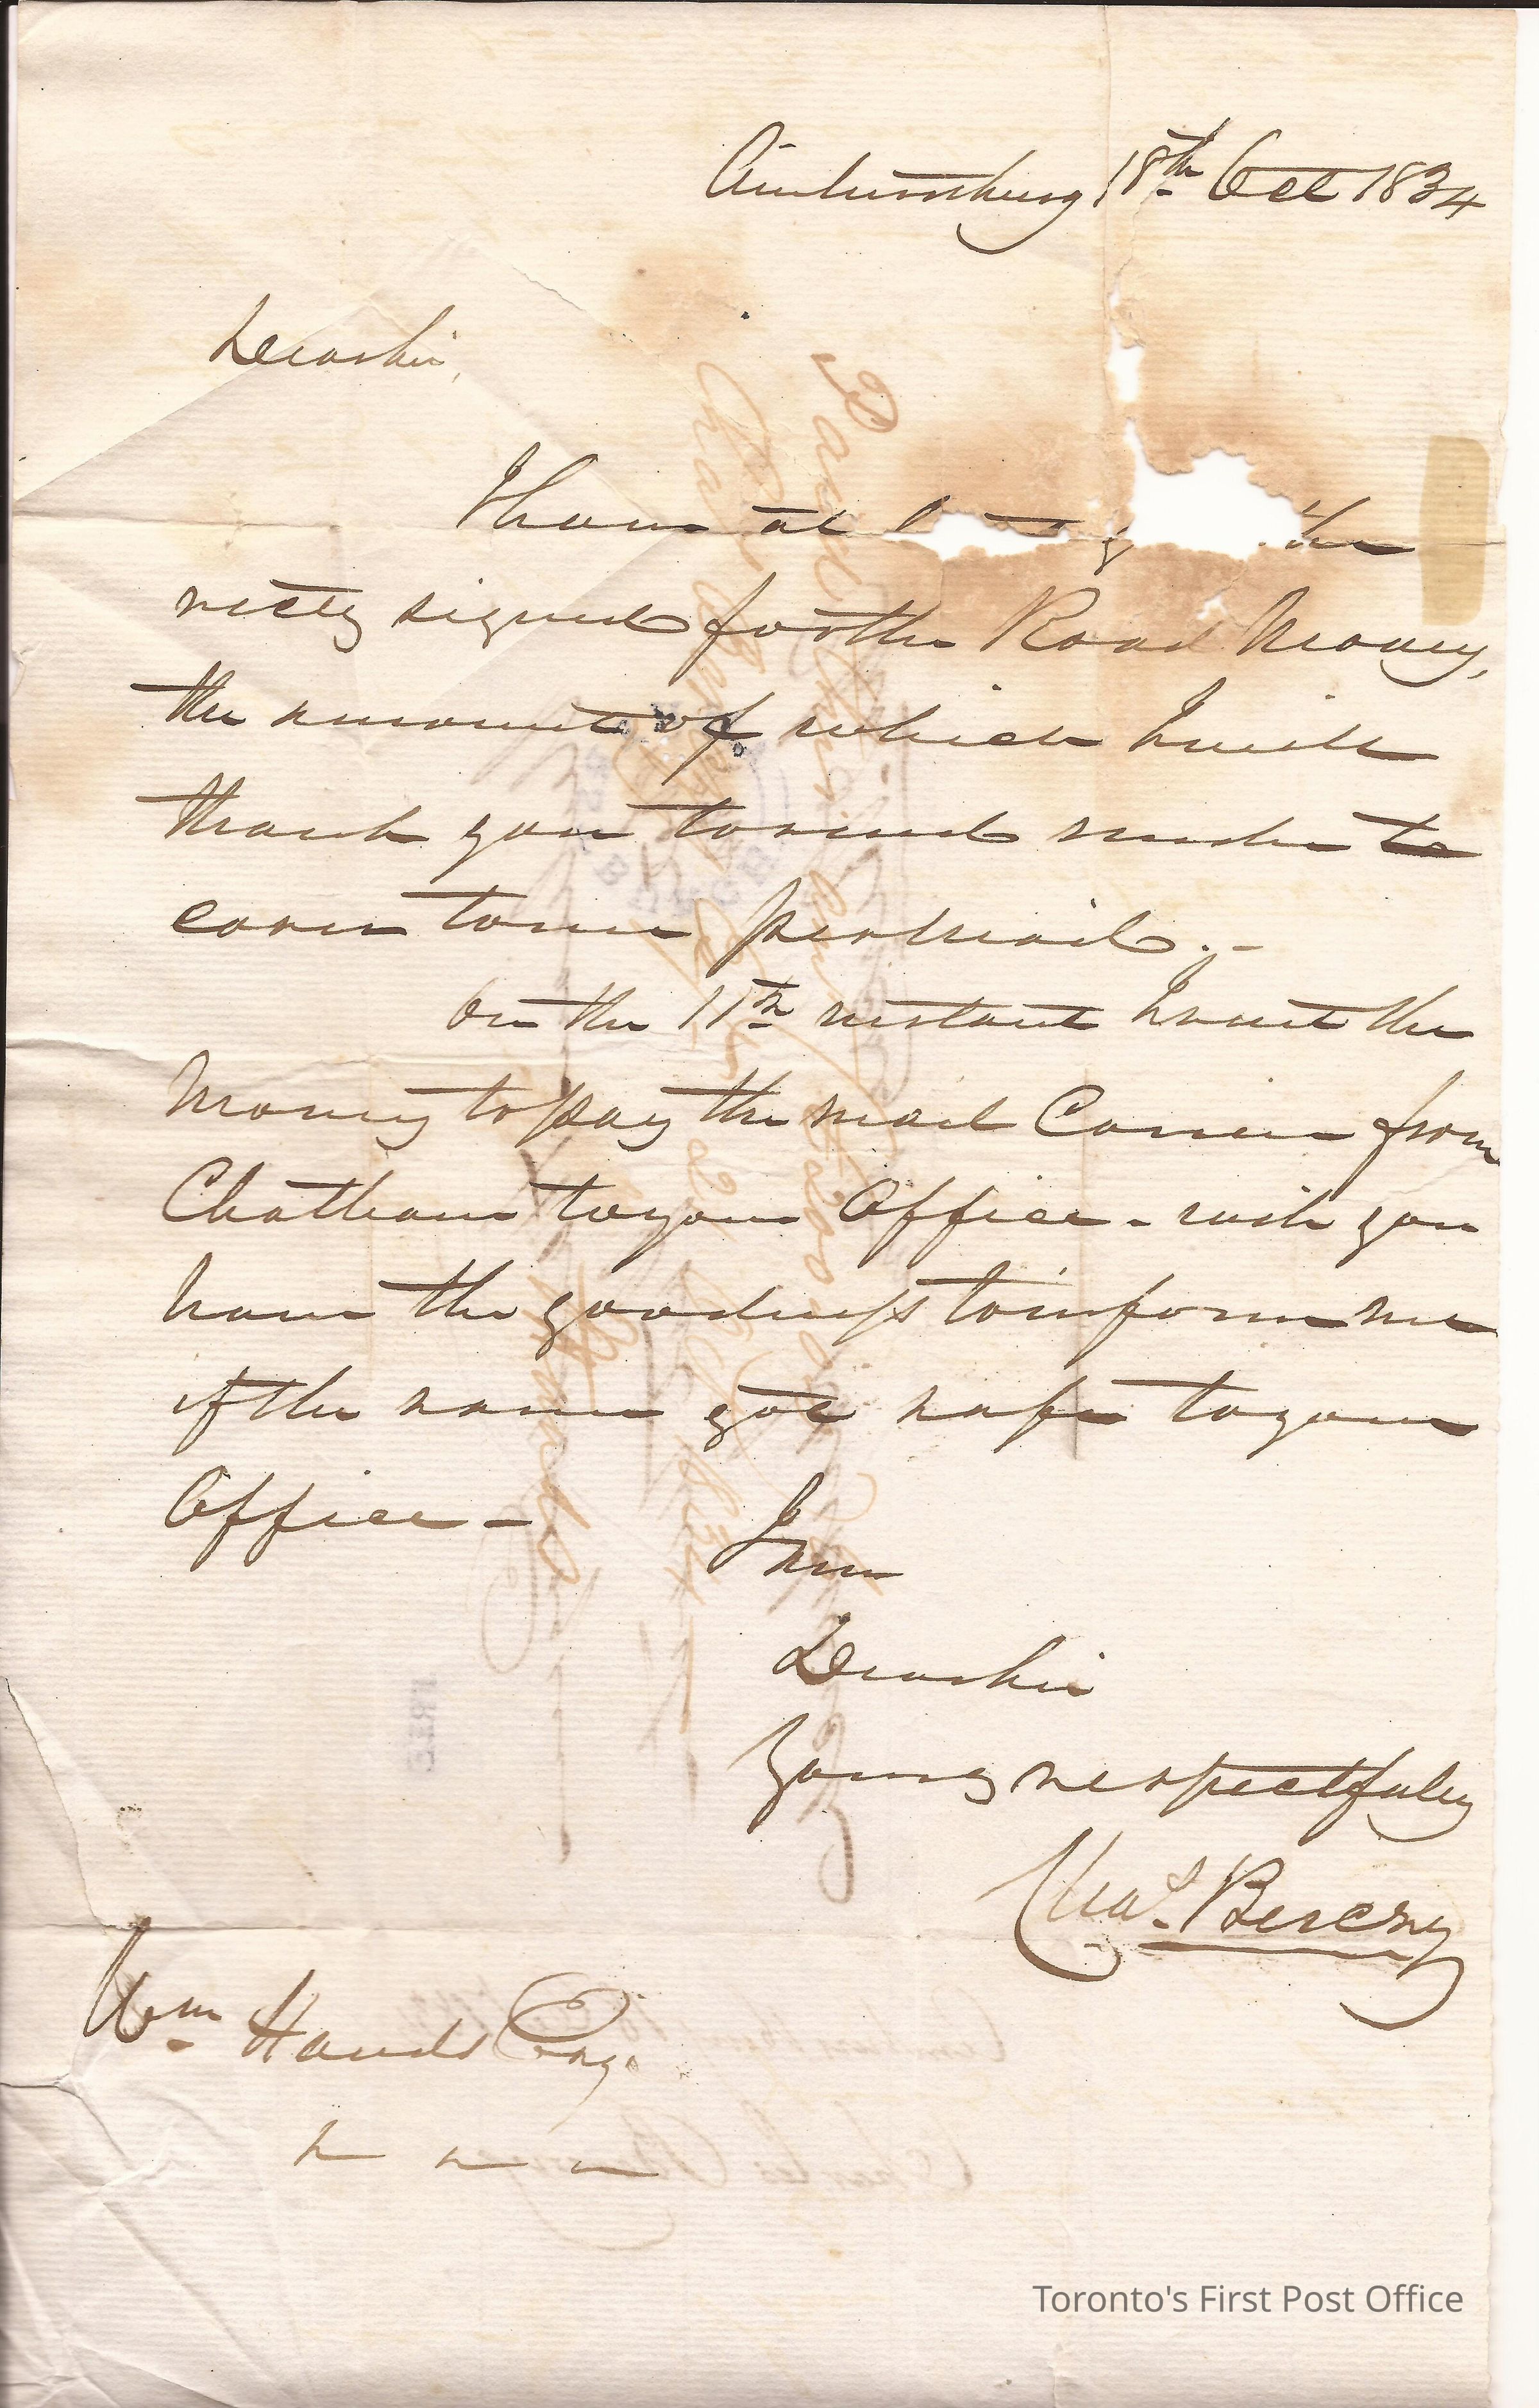 Amherstburg 18th Oct 1834
Dear Sir,
I have at the
rects signed for the Road Money,
the amount of which I will
thank you to send under to
cover to me per Mail. -
On the 11th instant I sent the
Money to pay the mail Carrier from
Chatham to your Office - will you
have the goodness to inform me
if the same got safe to your
Office -
I am
Dear Sir
Yours respectfuly
Chas. Berczy
Wm Hands Esqr.
Toronto's First Post Office